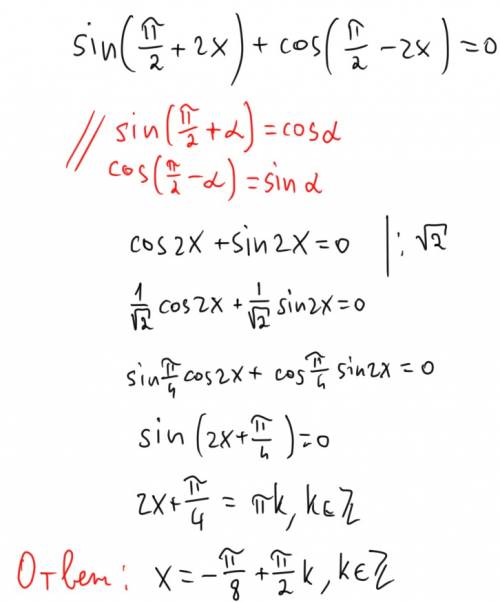 sin(π/2 + 2x) + cos(π/2 − 2x) = 0
// sin(π/2 + α) = cosα
cos(π/2 − α) = sinα
cos2x + sin2x = 0 | : √2
1/√2 cos2x + 1/√2 sin2x = 0
sin π/4 cos2x + cos π/4 sin2x = 0
sin(2x + π/4) = 0
2x + π/4 = πk, k∈ℤ
Ответ: x = −π/8 + π/2 k, k∈ℤ